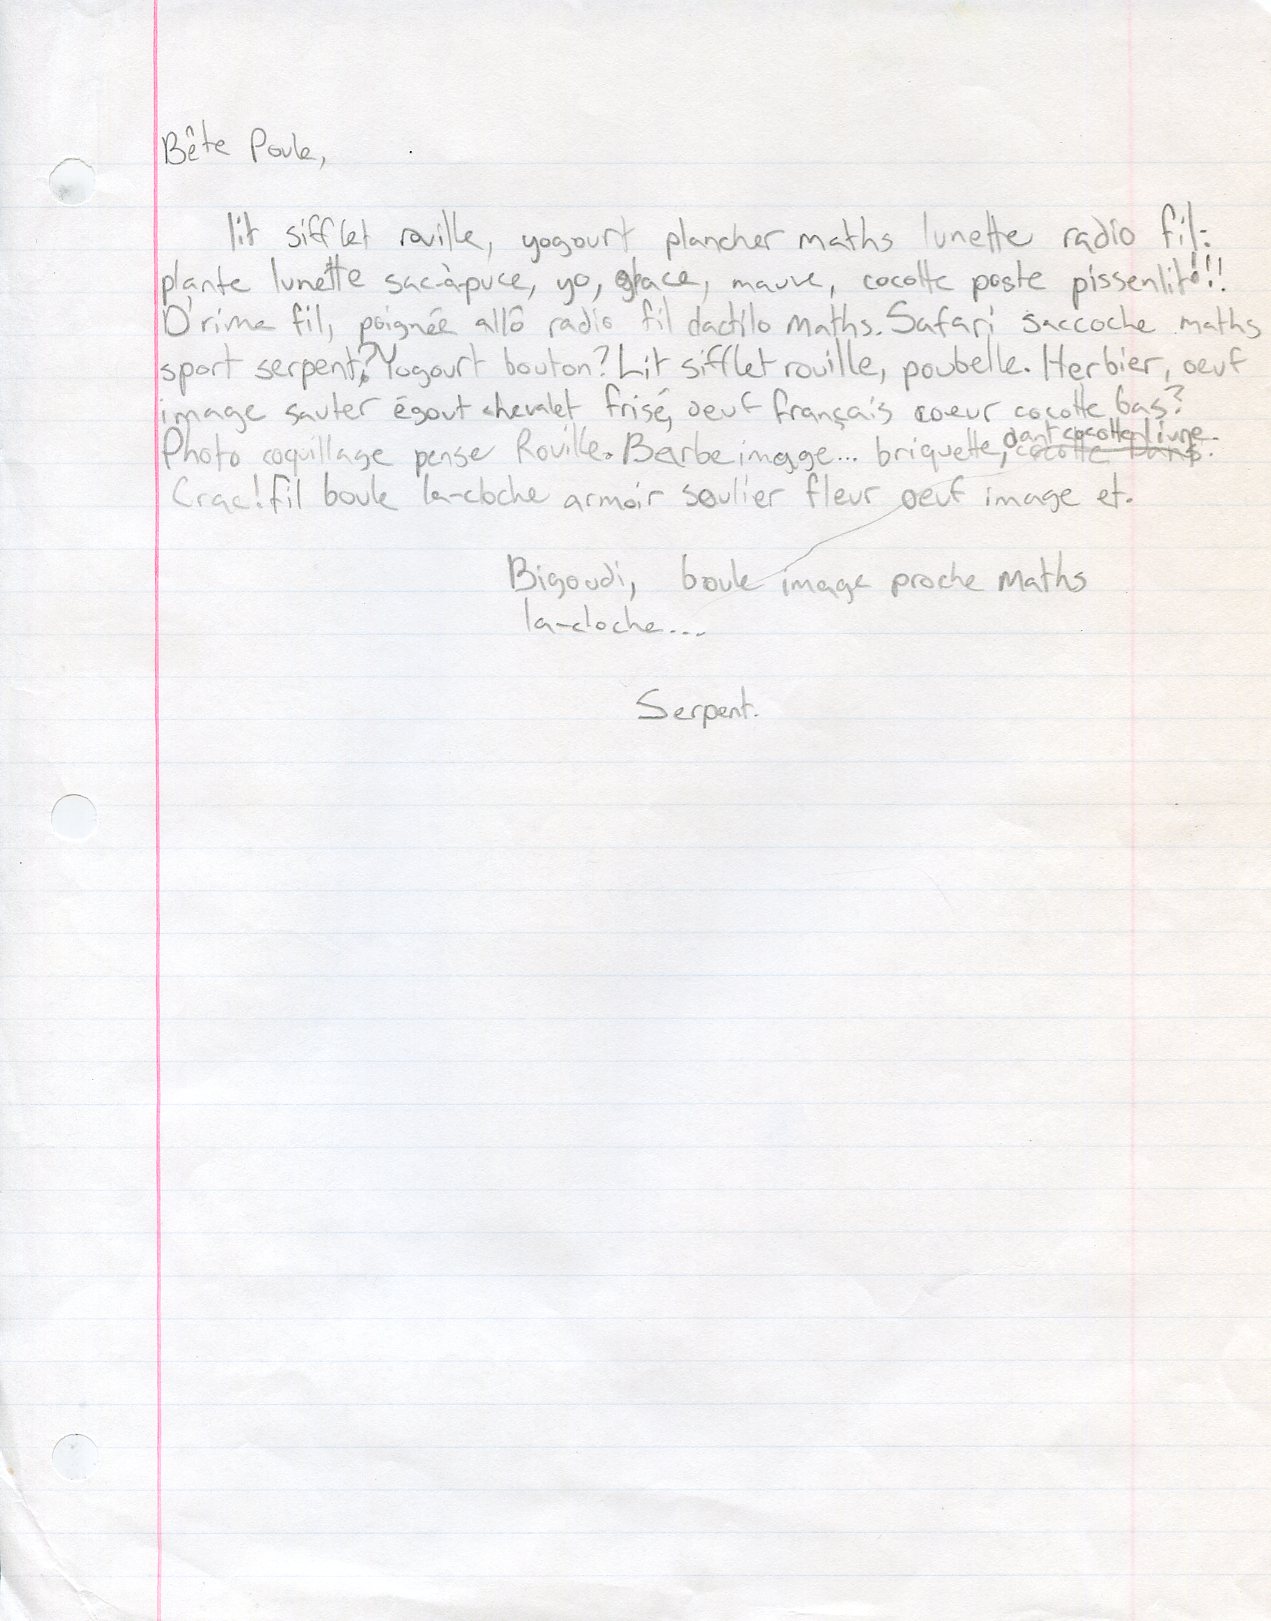 Bête Poule,
lit sifflet rouille, yogourt plancher maths lunette radio fil:
plante lunette sac-à-puce, yo, glace, mauve, cocotte poste pissenlit!!!
D'rime fil, poignée allô radio fil dactilo maths. Safari saccoche maths
sport serpent? Yogourt bouton? Lit sifflet rouille, poubelle. Herbier, oeuf
image sauter égout chevalet frisé, oeuf français coeur cocotte bas?
Photo coquillage pense Rouille. Barbe image... briquette, dant cocotte livre.
Crac! fil boule la-cloche armoir soulier fleur oeuf image et.
Bigoudi, boule image proche maths
la-cloche...
Serpent.